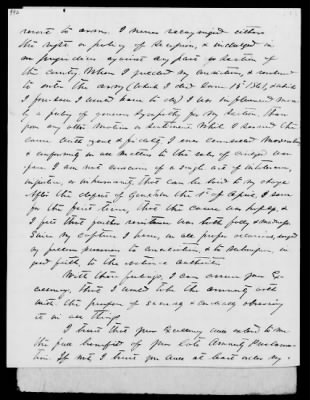 resort to arms. I never recognized either
the right or policy of Secession, & indulged in
no prejudices against any part or section of
the country. When I yielded my convictions, & resolved
to enter the army (which I did June 15th 1861, & which
I foresaw I would have to do) I was influenced more
by a feeling of generous sympathy for my section, than
upon any other motive or sentiment. While I served the
cause with zeal & fidelity, I ever counselled moderation
& conformity in all matters to the rules of civilized war-
fare. I am not conscious of a single act of
or inhumanity, that can be laid to my charge.
After the defeat of Genl Lee the 1st of April, I saw
for the first time, that the cause was hopeless, &
I felt that further resistance was both folly & madness.
Since my capture I have, on all proper occasions, urged
my fellow prisoners to & to submission, in
good faith to the national authorities.
With these feelings, I can assure your Ex-
cellency, that I would take the amnesty oath
with the purpose of sacredly & cordially observing
it in all things.
I trust that your Excellency will extend to me
the full benefit of your late Amnesty Proclama-
tion. If not I trust you will at least order my